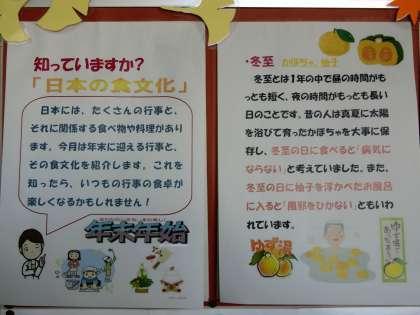 知っていますか?
「日本の食文化」
日本には、たくさんの行事と、
それに関係する食べ物や料理があり
ます。今月は年末に迎える行事と、
その食文化を紹介します。これを
知ったら、いつもの行事の食卓が
楽しくなるかもしれません!
年末年始
・冬至 かぼちゃ、柚子
冬至とは1年の中で昼の時間がも
っとも短く、夜の時間がもっとも長い
日のことです。昔の人は真夏に太陽
を浴びて育ったかぼちゃを大事に保
存し、冬至の日に食べると「病気に
ならない」と考えていました。また、
冬至の日に柚子を浮かべたお風呂
に入ると「風邪をひかない」ともいわ
れています。
ゆず湯